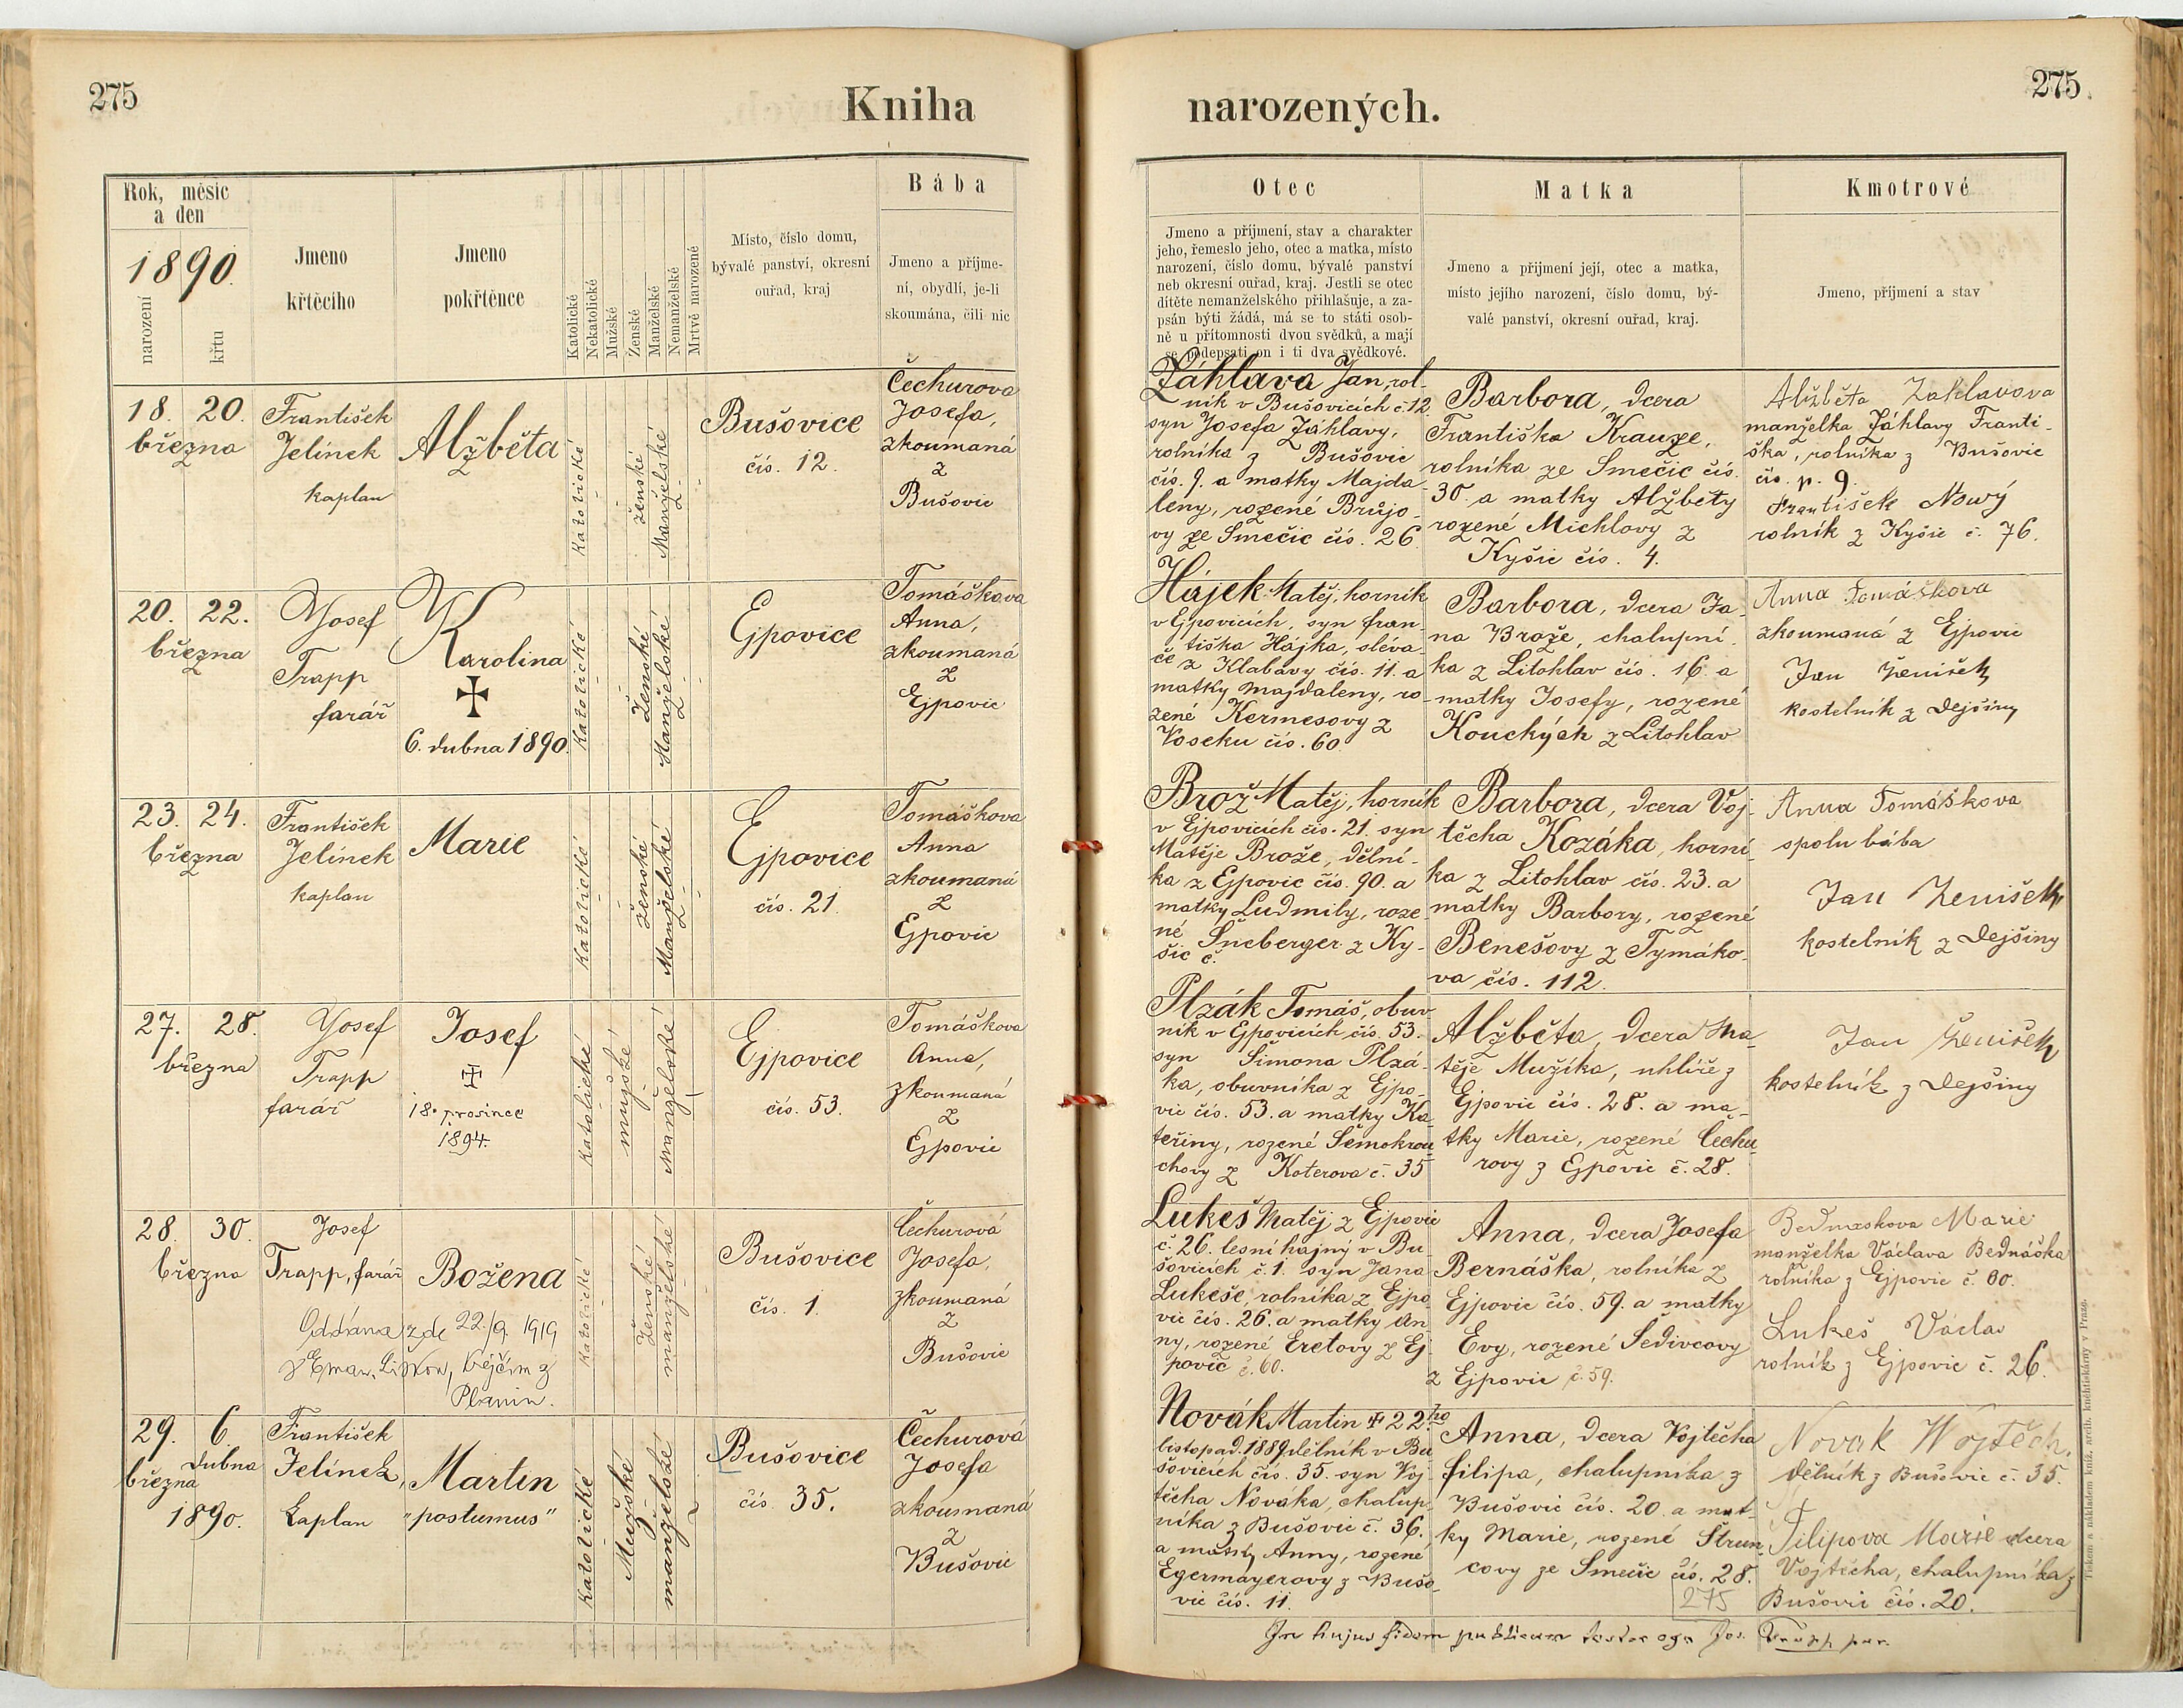 275
Kniha
narozených.
275
Rok, měsíc
a den
1890.
narození
křtu
Jmeno
křtěcího
Jmeno
pokřtěnce
Katolické
Nekatolické
Mužské
Ženské
Manželské
Nemanželské
Mrtvě narozené
Místo, číslo domu,
bývalé panství, okresní
ouřad, kraj
Bába
Jmeno a příjme-
ní, obydlí, je-li
skoumána, čili nic
Otec
Jmeno a příjmení, stav a charakter
jeho, řemeslo jeho, otec a matka, místo
narození, číslo domu, bývalé panství
neb okresní ouřad, kraj. Jestli se otec
dítěte nemanželského přihlašuje, a za-
psán býti žádá, má se to státi osob-
ně u přítomnosti dvou svědků, a mají
se podepsati on i ti dva svědkové.
Matka
Jmeno a přijmení její, otec a matka,
místo jejího narození, číslo domu, bý-
valé panství, okresní ouřad, kraj.
Kmotrové
Jmeno, příjmení a stav
18. 20.
března
František
Jelínek
kaplan
Alžběta
Katolické
ženské
Manželské
Bušovice
čís. 12.
Čechurova
Josefa,
zkoumaná
z
Bušovic
Záhlava Jan, rol-
ník v Bušovicích č. 12
syn Josefa Záhlavy,
rolníka z Bušovic
čís. 9. a matky Majda-
leny, rozené Brůjo-
vy ze Smečic čís. 26
Barbora, dcera
Františka Krauze,
rolníka ze Smečic čís.
30. a matky Alžběty
rozené Michlovy z
Kyšic čís. 4.
Alžběta Zahlavova
manželka Záhlavy Franti-
ška, rolníka z Bušovic
čís. p. 9.
František Nowý
rolník z Kyšic č. 76.
20. 22.
března
Josef
Trapp
farář
Karolina
6. dubna 1890.
Katolické
Ženské
Manželské
Ejpovice
Tomáškova
Anna,
zkoumaná
z
Ejpovic
Hájek Matěj, horník
v Ejpovicích, syn fran-
tiška Hájka, sléva-
če z Klabavy čís. 11. a
matky Majdaleny, ro-
zené Kermesovy z
Voseku čís. 60.
Barbora, dcera Ja-
na Brože, chalupní-
ka z Litohlav čís. 16. a
matky Josefy, rozené
Kouckých z Litohlav
Anna Tomáškova
zkoumaná z Ejpovic
Jan Ženíšek
kostelník z Dejšiny
23. 24.
března
František
Jelínek
kaplan
Marie
Katolické
ženské
Manželské
Ejpovice
čís. 21.
Tomáškova
Anna
zkoumaná
z
Ejpovic
Brož Matěj, horník
v Ejpovicích čís. 21. syn
Matěje Brože, dělní-
ka z Ejpovic čís. 90. a
matky Ludmily, roze-
né Šneberger z Ky-
šic č.
Barbora, dcera Voj-
těcha Kozáka, horní-
ka z Litohlav čís. 23. a
matky Barbory, rozené
Benešovy z Tymáko-
va čís. 112.
Anna Tomáškova
spolu bába
Jan Ženíšek
kostelník z Dejšiny
27. 28.
března
Josef
Trapp
farář
Josef
18. prosince
1894.
Katolické
mužské
Manželské
Ejpovice
čís. 53.
Tomáškova
Anna,
zkoumaná
z
Ejpovic
Plzák Tomáš, obuv-
ník v Ejpovicích čís. 53.
syn Šimona Plzá-
ka, obuvníka z Ejpo-
vic čís. 53. a matky Ka-
teřiny, rozené Šemokrou
chovy z Koterova č. 35
Alžběta, dcera Ma-
těje Mužíka, uhlíře z
Ejpovic čís. 28. a ma-
tky Marie, rozené Čechu-
rovy z Ejpovic č. 28.
Jan Ženíšek
kostelník z Dejšiny
28. 30.
března
Josef
Trapp, farář
Božena
Oddána zde 22./9. 1919
Katolické
Ženské
manželské
Bušovice
čís. 1.
Čechurová
Josefa,
zkoumaná
z
Bušovic
Lukeš Matěj z Ejpovic
č. 26. lesní hajný v Bu-
šovicích č. 1. syn Jana
Lukeše, rolníka z Ejpo-
vic čís. 26. a matky An-
ny, rozené Eretovy z Ej-
povic č. 60.
Anna, dcera Josefa
Bernáška, rolníka z
Ejpovic čís. 59. a matky
Evy, rozené Šedivcovy
z Ejpovic č. 59.
Marie
manželka Václava Bednáška
rolníka z Ejpovic č. 60.
Lukeš Václav
rolník z Ejpovic č. 26.
29. 6.
dubna
března
1890.
František
Jelínek,
kaplan
Martin
"postumus"
Katolické
Mužské
manželské
Bušovice
čís. 35.
Čechurová
Josefa
zkoumaná
z
Bušovic
Novák Martin 22ho
listopad. 1889 dělník v Bu-
šovicích čís. 35. syn Voj-
těcha Nováka, chalup-
níka z Bušovic č. 36.
a matky Anny, rozené
Egermayerovy z Bušo-
vic čís. 11.
Anna, dcera Vojtěcha
Filipa, chalupníka z
Bušovic čís. 20. a mat-
ky Marie, rozené Štrun-
covy ze Smečic čís. 28.
275
Novak Wojtěch.
dělník z Bušovic č. 35.
Filipova Marie dcera
Vojtěcha, chalupníka z
Bušovic čís. 20.
In hujus fidem publicam testor ego Jos. Trapp par.
Tiskem a nákladem kníž. arcib. knihtiskárny v Praze.